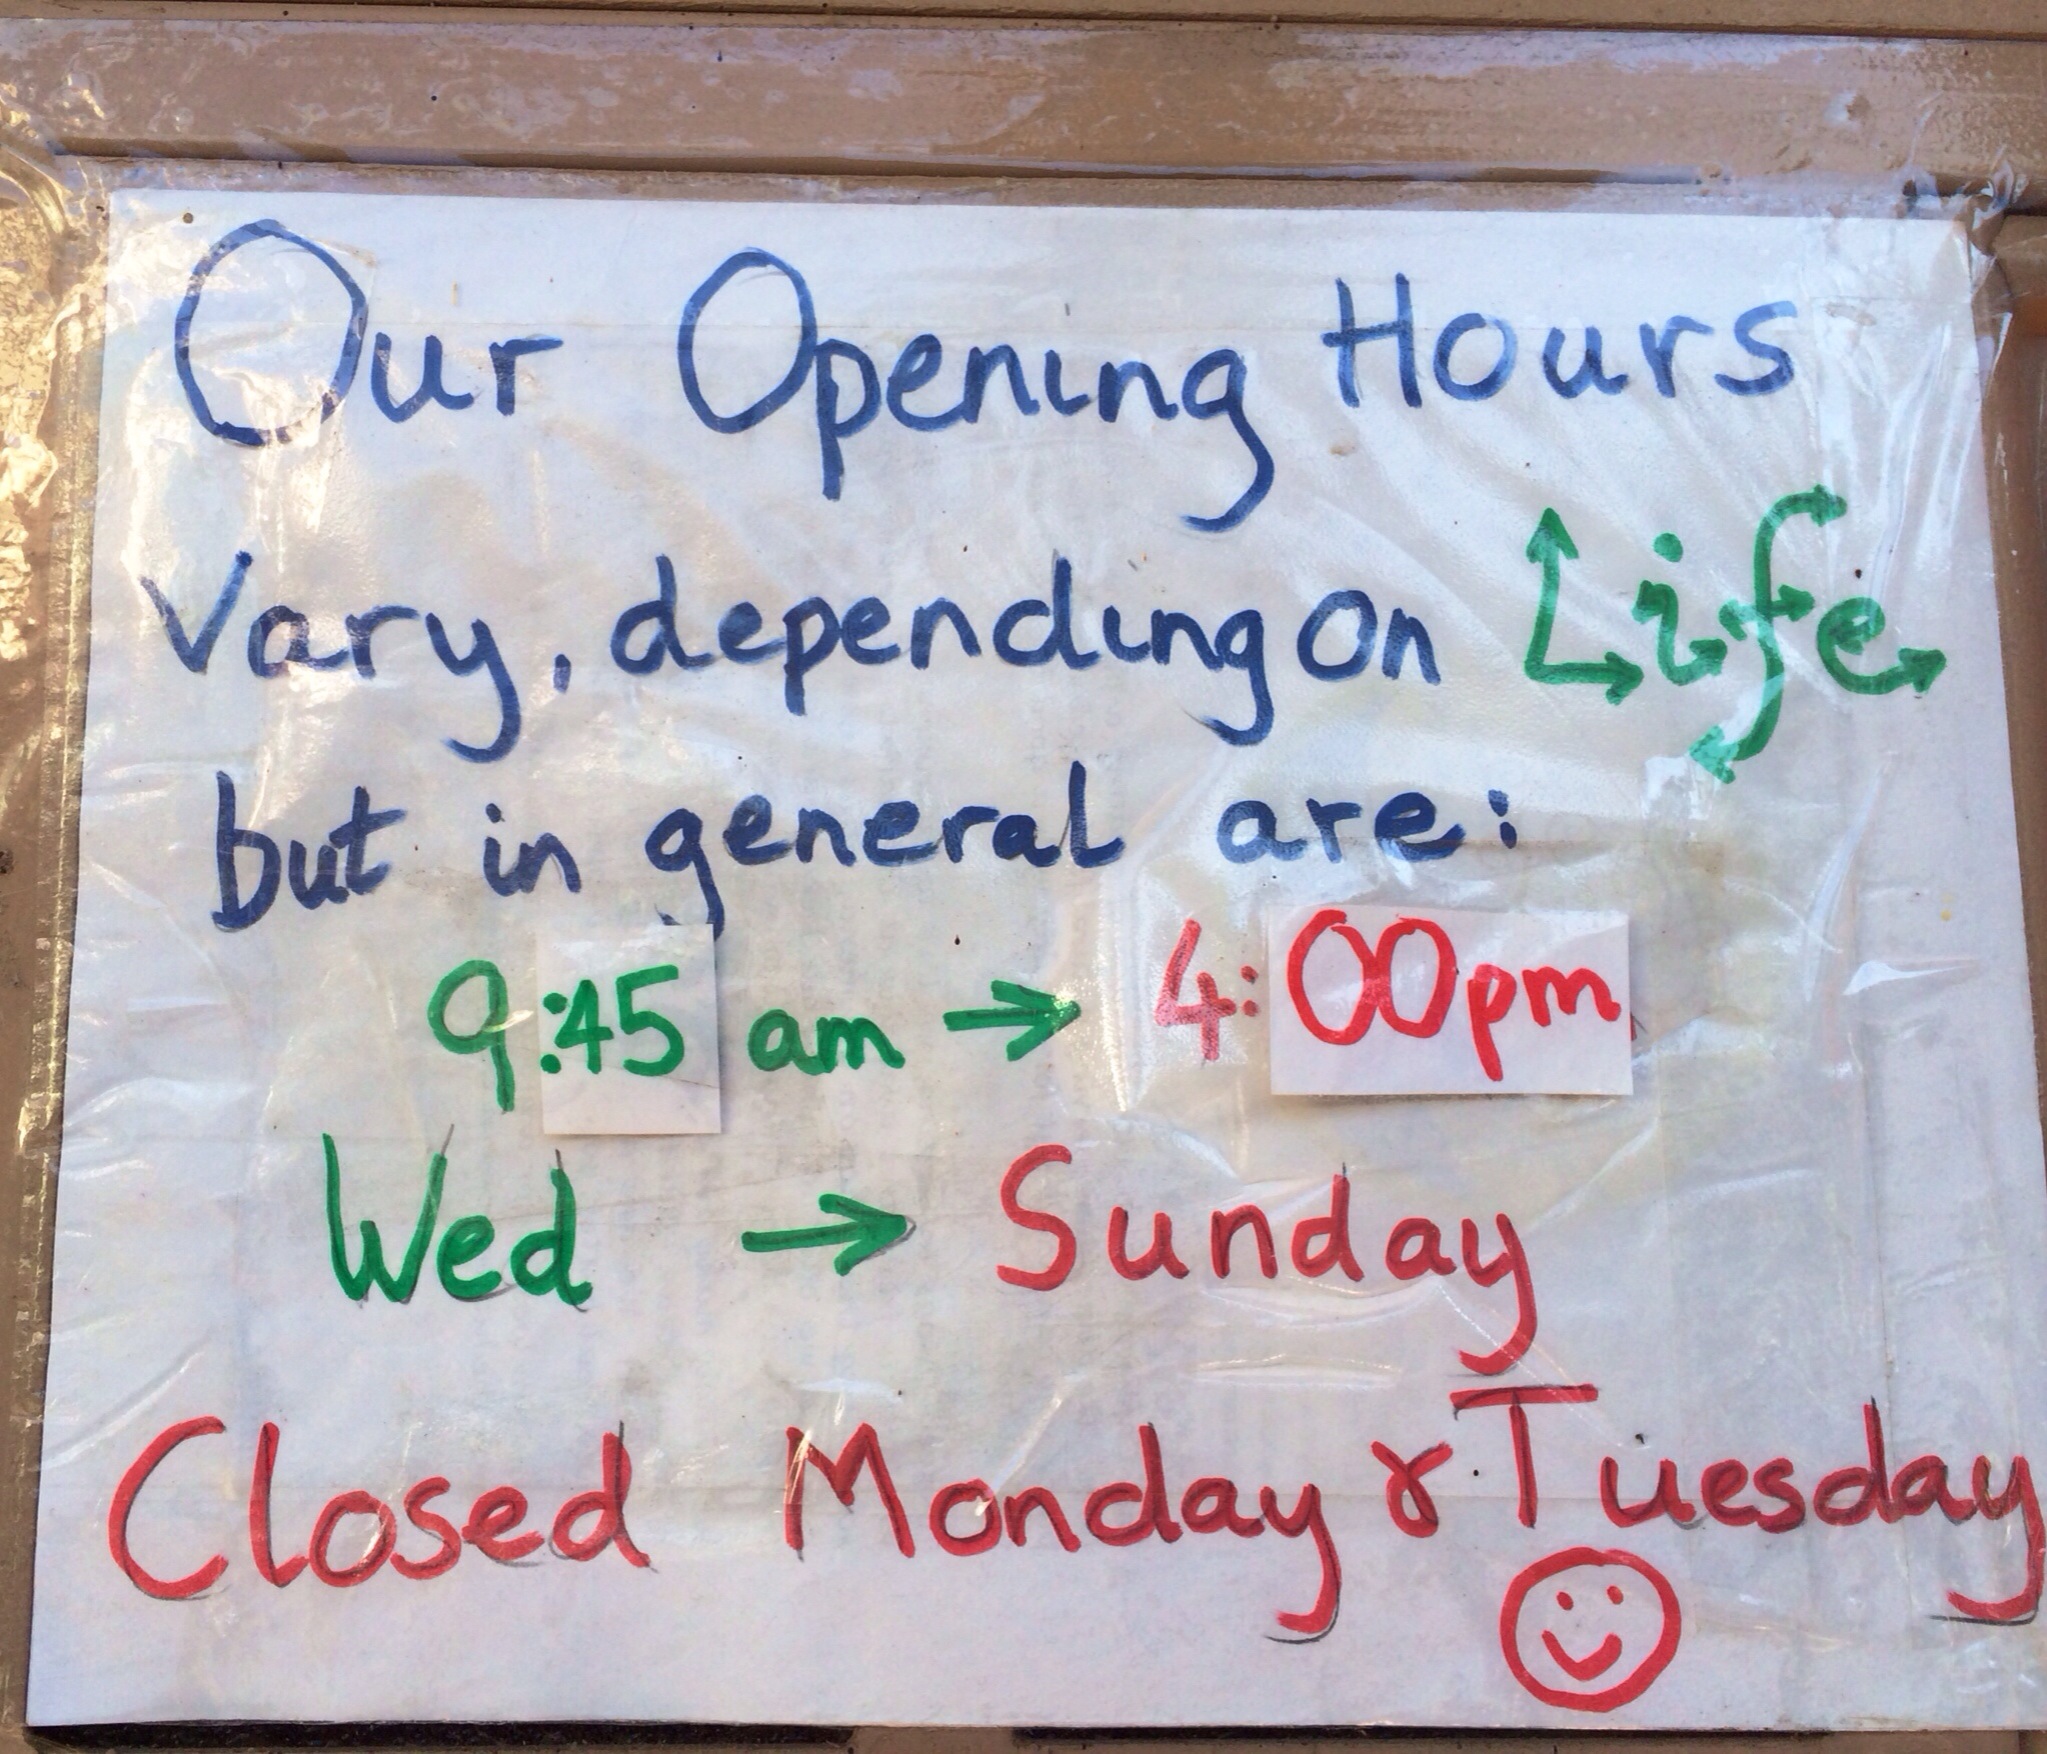 Our Opening Hours
Vary, depending on Life
but in general are:
9:45 am → 4:00pm
Wed → Sunday
Closed Monday & Tuesday